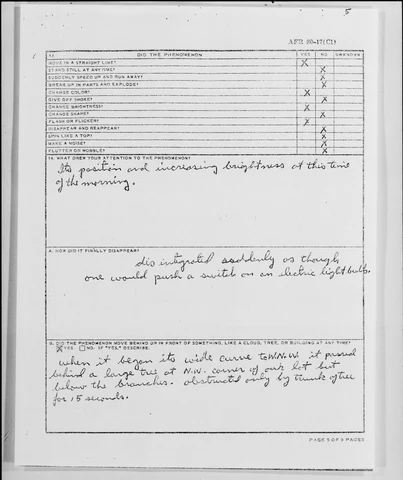 5
AFR 80-17(C1)
DID THE PHENOMENON YES NO UNKNOWN
MOVE IN A STRAIGHT LINE? X
STAND STILL AT ANYTIME? X
SUDDENLY SPEED UP AND RUN AWAY? X
BREAK UP IN PARTS AND EXPLODE? X
CHANGE COLOR? X
GIVE OFF SMOKE? X
CHANGE BRIGHTNESS? X
CHANGE SHAPE? X
FLASH OR FLICKER? X
DISAPPEAR AND REAPPEAR? X
SPIN LIKE A TOP? X
MAKE A NOISE? X
FLUTTER OR WOBBLE? X
WHAT DREW YOUR ATTENTION TO THE PHENOMENON?
Its position and increasing brightness at this time
of the morning.
A. HOW DID IT FINALLY DISAPPEAR?
disintegrated suddenly as though
one would push a switch on an electric light bulb.
B. DID THE PHENOMENON MOVE BEHIND OR IN FRONT OF SOMETHING, LIKE A CLOUD, TREE, OR BUILDING AT ANY TIME?
X YES NO. IF "YES," DESCRIBE.
when it began its wide curve to W.N.W. it passed
behind a large tree at N.W. corner of our lot but
below the branches. obstructed only by trunk of tree
for 15 seconds.
PAGE 5 OF 9 PAGES